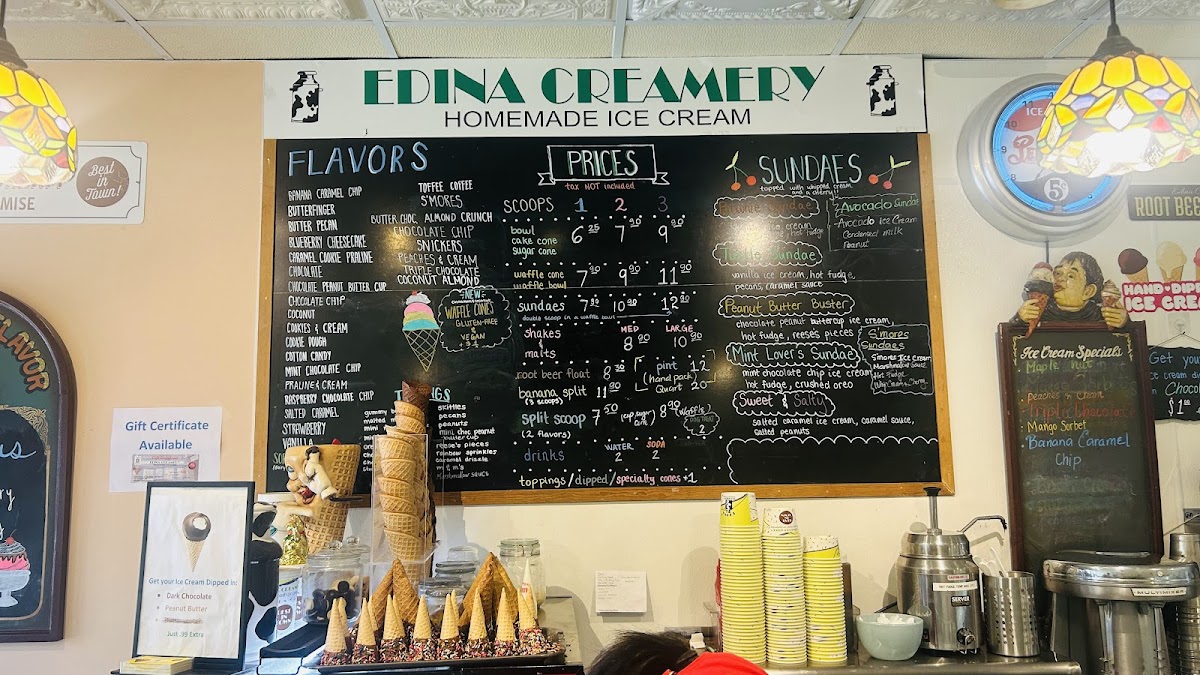 EDINA CREAMERY
HOMEMADE ICE CREAM
FLAVORS
BANANA CARAMEL CHIP
BUTTERFINGER
BUTTER PECAN
BLUEBERRY CHEESECAKE
CARAMEL COOKIE PRALINE
CHOCOLATE
CHOCOLATE PEANUT BUTTER CUP
CHOCOLATE CHIP
COCONUT
COOKIES & CREAM
COOKIE DOUGH
COTTON CANDY
MINT CHOCOLATE CHIP
PRALINE & CREAM
RASPBERRY CHOCOLATE CHIP
SALTED CARAMEL
STRAWBERRY
VANILLA
TOFFEE COFFEE
S'MORES
BUTTER CHOC. ALMOND CRUNCH
CHOCOLATE CHIP
SNICKERS
PEACHES & CREAM
TRIPLE CHOCOLATE
COCONUT ALMOND
NEW
WAFFLE CONES
GLUTEN-FREE
&
VEGAN
skittles
pecans
peanuts
mini choc peanut
butter cup
reese's pieces
rainbow sprinkles
caramel drizzle
m & m's
Marshmallow sauce
PRICES
tax NOT included
SCOOPS 1 2 3
bowl
cake cone
sugar cone
6 25 7 90 9 90
waffle cone
waffle bowl
7 90 9 90 11 90
sundaes 7 90 10 90 12 90
double scoop in a waffle bowl
MED LARGE
shakes
&
malts
8 90 10 90
root beer float 8 30
pint 12
(hand pack)
Quart 20
banana split 11 90
(3 scoops)
split scoop 7 50 (cup, sugar, cake) 8 90 (Waffle)
(2 flavors)
WATER SODA
drinks 2 2
toppings/dipped/specialty cones +1
SUNDAES
topped with whipped cream
and a cherry!!
Sundae
ice cream
hot fudge
Avocado Sundae
-Avocado Ice Cream
Condensed milk
Peanut
Turtle Sundae
vanilla ice cream, hot fudge,
pecans, caramel sauce
Peanut Butter Buster
chocolate peanut buttercup ice cream,
hot fudge, reese's pieces
S'mores
Sundaes
S'mores Ice Cream
Marshmallow Sauce
Hot Fudge
Whip Cream & Cherry
Mint Lover's Sundae
mint chocolate chip ice cream
hot fudge, crushed oreo
Sweet & Salty
salted caramel ice cream, caramel sauce,
salted peanuts
Best
in
Town!
MISE
FLAVOR
Gift Certificate
Available
Get your Ice Cream Dipped In:
• Dark Chocolate
• Peanut Butter
Just .99 Extra
ICE
5¢
ROOT BEE
HAND-DIPP
ICE CRE
Ice Cream Specials
Maple Nut
peaches n Cream
Triple Chocolate
-Mango Sorbet
-Banana Caramel
Chip
Get you
ice cream di
Choco
$1
SERVER
MULTIMIXER